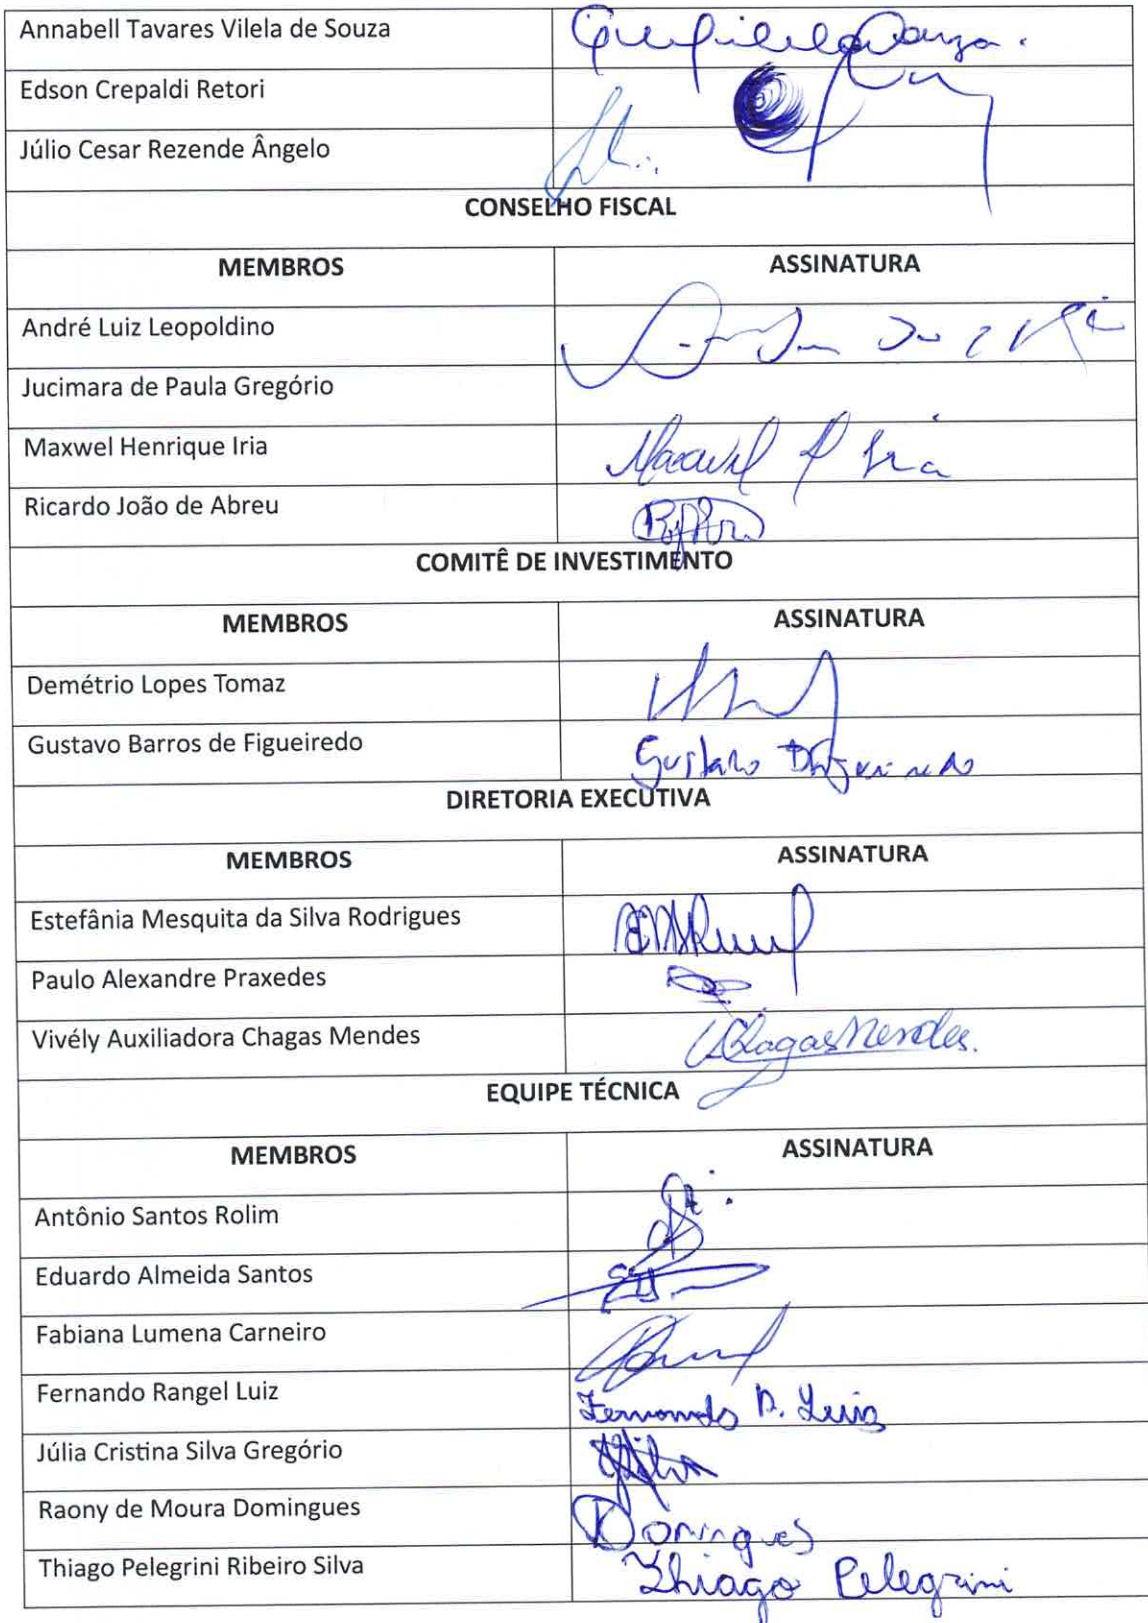 Annabell Tavares Vilela de Souza
Edson Crepaldi Retori
Júlio Cesar Rezende Ângelo
CONSELHO FISCAL
MEMBROS ASSINATURA
André Luiz Leopoldino
Jucimara de Paula Gregório
Maxwel Henrique Iria
Ricardo João de Abreu
COMITÊ DE INVESTIMENTO
MEMBROS ASSINATURA
Demétrio Lopes Tomaz
Gustavo Barros de Figueiredo Gustavo
DIRETORIA EXECUTIVA
MEMBROS ASSINATURA
Estefânia Mesquita da Silva Rodrigues
Paulo Alexandre Praxedes
Vivély Auxiliadora Chagas Mendes ChagasMendes.
EQUIPE TÉCNICA
MEMBROS ASSINATURA
Antônio Santos Rolim
Eduardo Almeida Santos
Fabiana Lumena Carneiro
Fernando Rangel Luiz Fernando R. Luiz
Júlia Cristina Silva Gregório
Raony de Moura Domingues Domingues
Thiago Pelegrini Ribeiro Silva Thiago Pelegrini